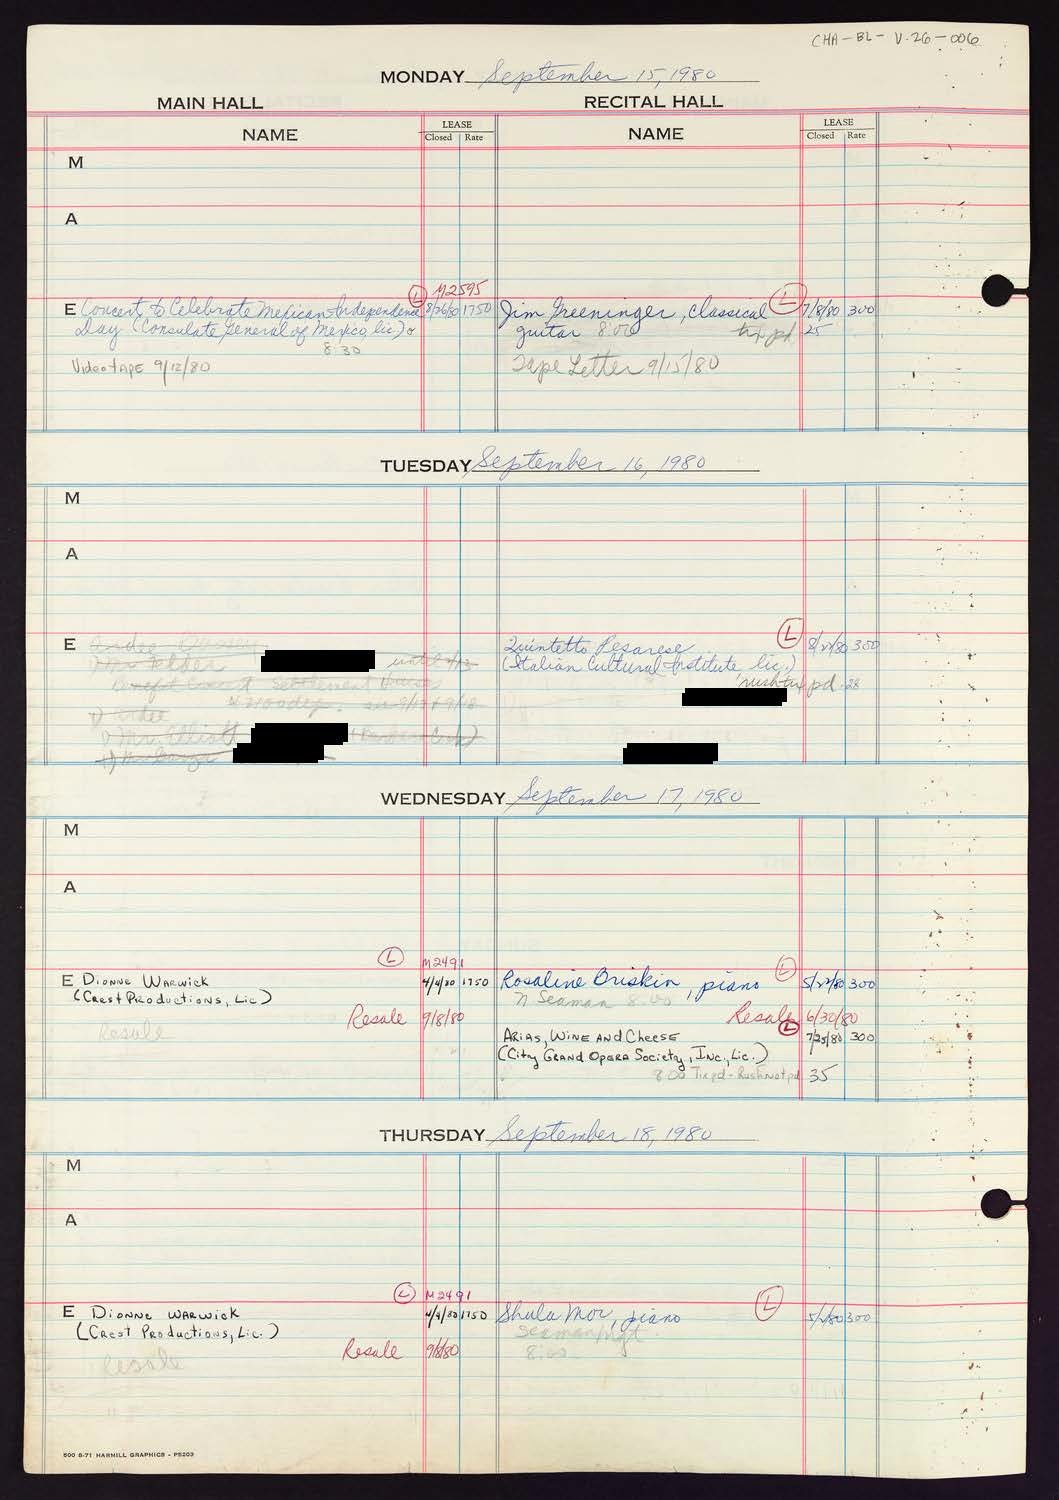 CHA-BL-V.26-006
MONDAY September 15, 1980
MAIN HALL RECITAL HALL
NAME LEASE Closed Rate NAME LEASE Closed Rate
M
A
L M2595
E Concert to Celebrate Mexican Independence 8/26/80 1750
Day (Consulate General of Mexico, lic.)
8:30
Videotape 9/12/80
Jim Greeninger, classical L 7/8/80 300
guitar 8:00 tix pd 25
Tape Letter 9/15/80
TUESDAY September 16, 1980
M
A
E
Mr. Felder until
Benefit Concert Settlement House
Mr. Elliott
L
Quintetto Pesarese 300
(Italian Cultural Institute, lic.)
rush tix pd. 28
WEDNESDAY September 17, 1980
M
A
L M2491
E Dionne Warwick 4/4/80 1750
(Crest Productions, Lic.)
Resale 9/8/80
Resale
Rosaline Briskin, piano L 5/27/80 300
N Seaman 8:00
Resale 6/30/80
Arias, Wine and Cheese L 7/25/80 300
(City Grand Opera Society, Inc., Lic.)
8:00 Tix pd - Rush not pd 35
THURSDAY September 18, 1980
M
A
L M2491
E Dionne Warwick 4/4/80 1750
(Crest Productions, Lic.)
Resale 9/8/80
Resale
Shula Mor, piano L 300
Seaman Mgt
8:00
500 8-71 HARNILL GRAPHICS - P5203